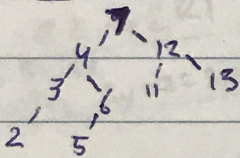 7
4 12
3 6 11 13
2 5